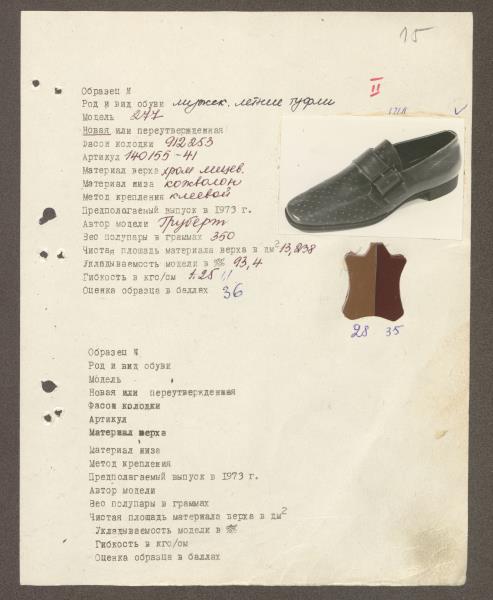 15
Образец №
II
Род и вид обуви мужск. летние туфли
Модель 277
Новая или переутвержденная
Фасон колодки 912253
Артикул 140155-41
Материал верха хром лицев.
Материал низа кожволон
Метод крепления клеевой
Предполагаемый выпуск в 1973 г.
Автор модели Груберт
Вес полупары в граммах 350
Чистая площадь материала верха в дм2 13,838
Укладываемость модели в % 93,4
Гибкость в кгс/см 1.25
Оценка образца в баллах 36
28 35
Образец №
Род и вид обуви
Модель
Новая или переутвержденная
Фасон колодки
Артикул
Материал верха
Материал низа
Метод крепления
Предполагаемый выпуск в 1973 г.
Автор модели
Вес полупары в граммах
Чистая площадь материала верха в дм2
Укладываемость модели в %
Гибкость в кгс/см
Оценка образца в баллах